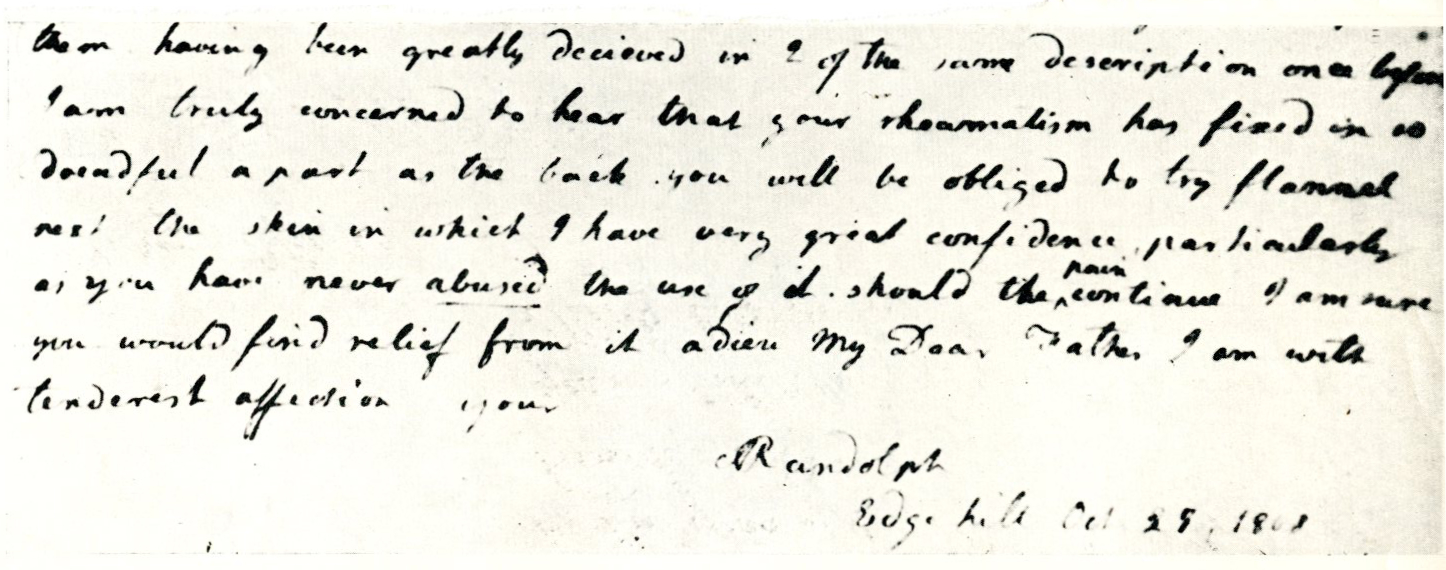 them having been greatly decieved in 2 of the same description once before
I am truly concerned to hear that your rheumatism has fixed in so
dreadful a part as the back you will be obliged to try flannel
next the skin in which I have very great confidence particularly
as you have never abused the use of it. should the pain continue I am sure
you would find relief from it adieu My Dear Father I am with
tenderest affection your
MRandolph
Edge hill Oct